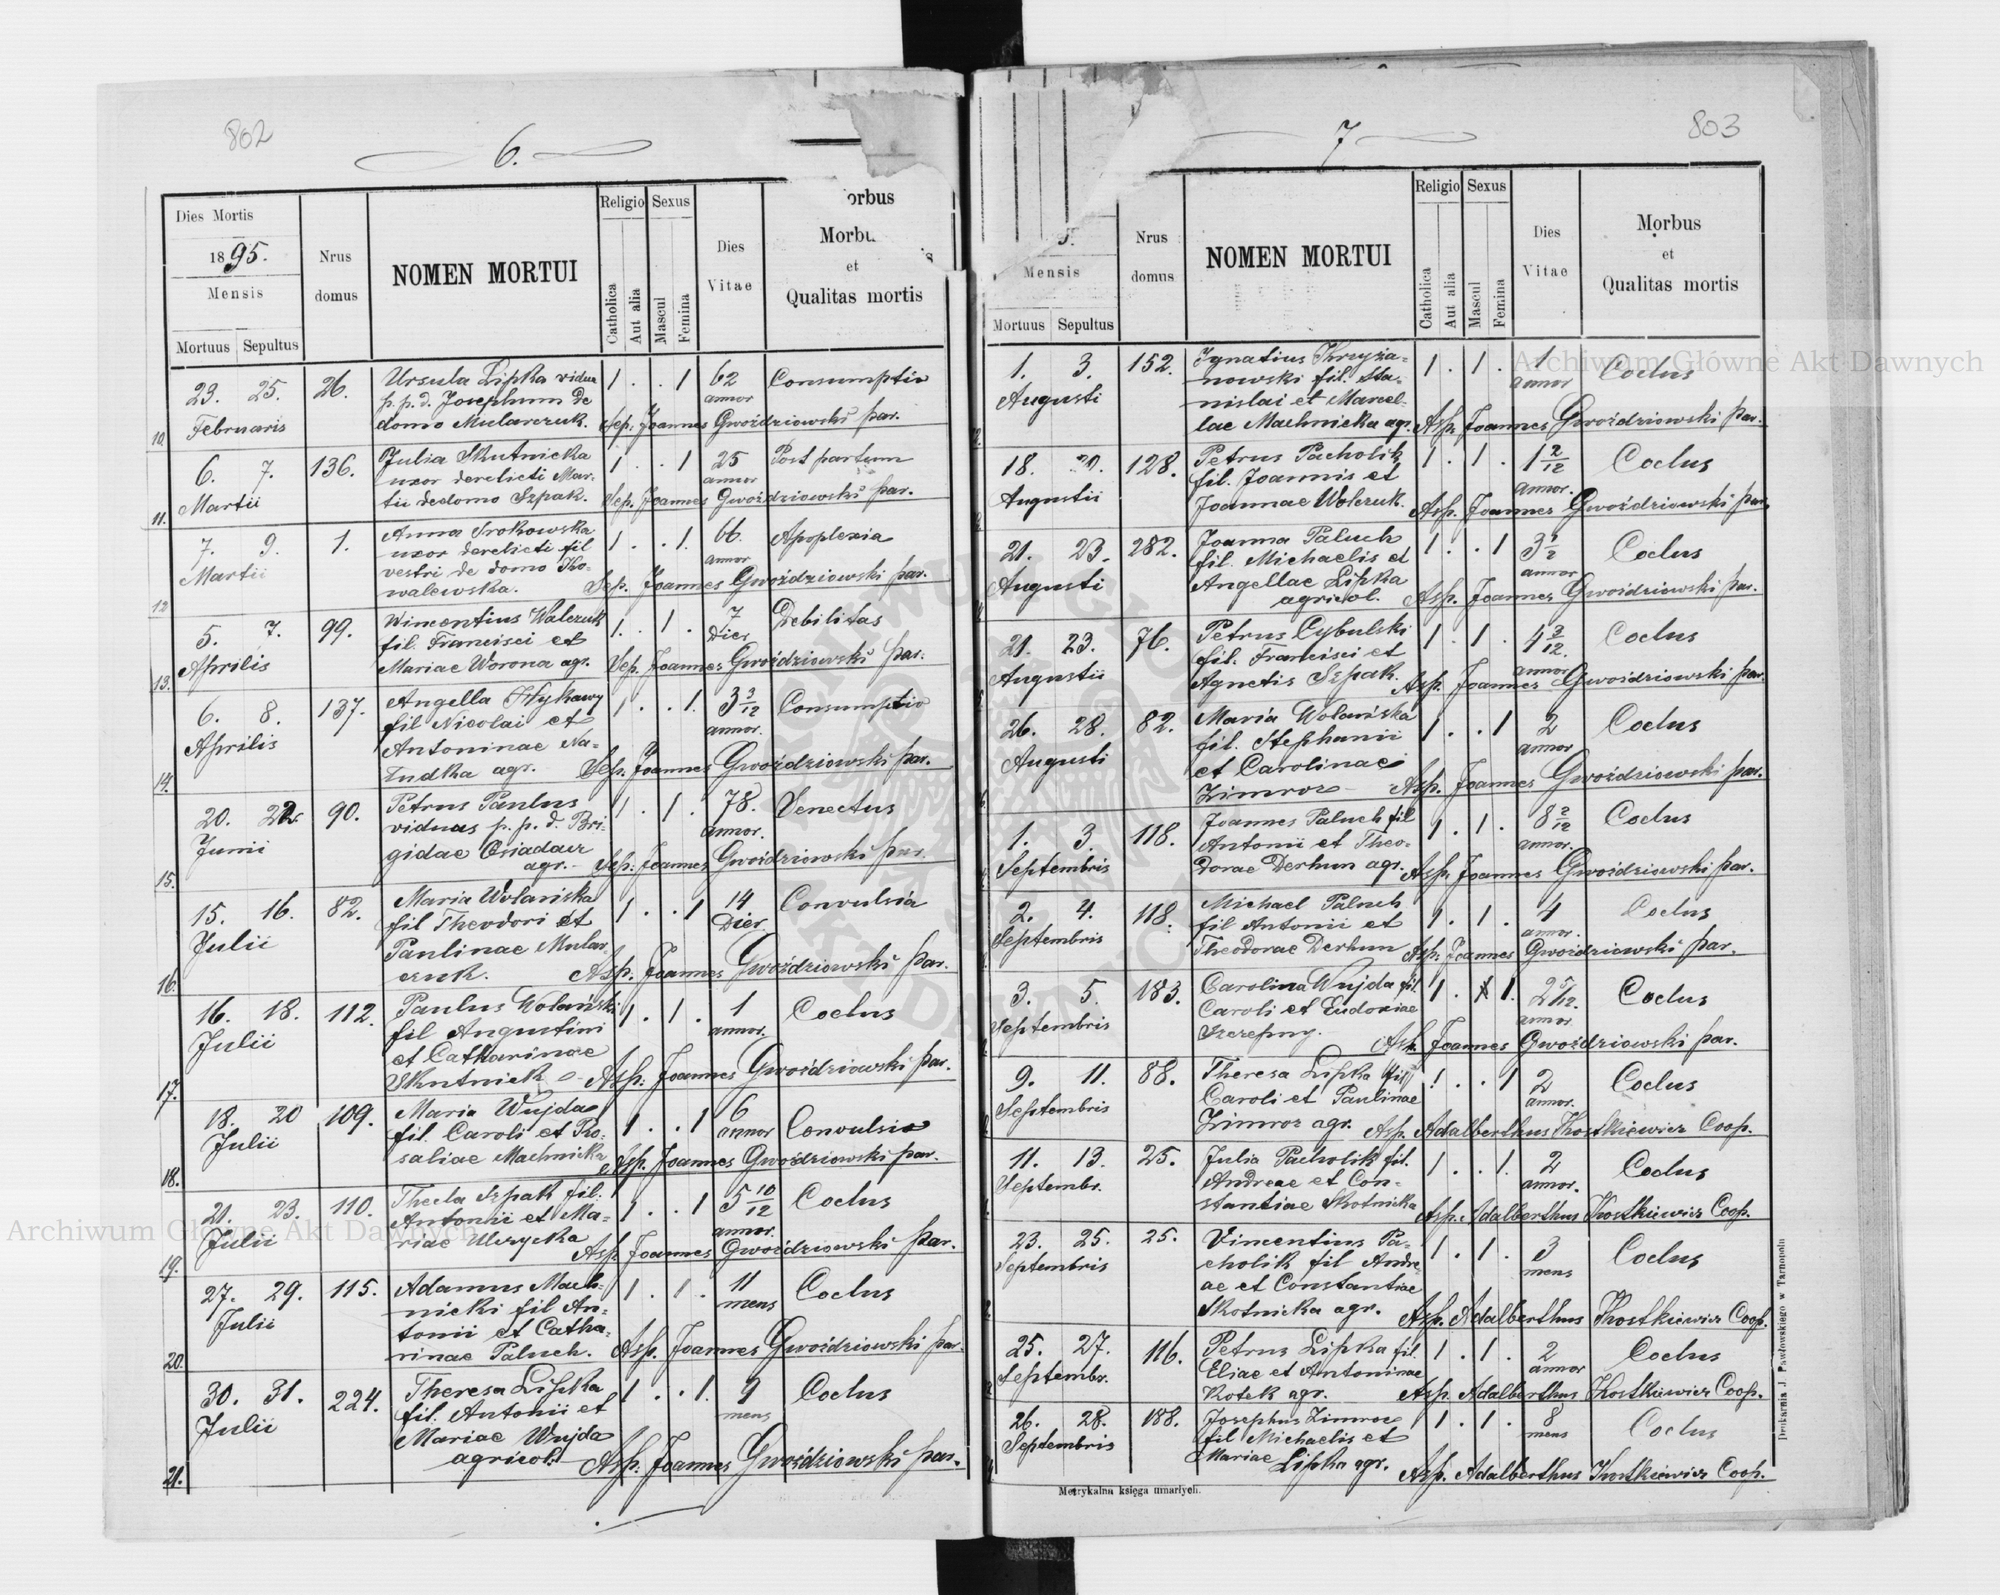 802
6.
Dies Mortis
1895.
Mensis
Mortuus Sepultus
Nrus domus
NOMEN MORTUI
Religio
Catholica
Aut alia
Sexus
Mascul
Femina
Dies Vitae
orbus
Morbu
et
Qualitas mortis
10. 23. 25. 26. Ursula Lipka vidua 1 . . 1 62 Consumptio
Februaris p. p. d. Josephum de annor
domo Mularczuk. Sep. Joannes Gwoździowski par.
11. 6. 7. 136. Julia Skutnicka 1 . . 1 25 Post partum
Martii uxor derelicti Mar- annor
tii dedomo Szpak. Sep. Joannes Gwoździowski par.
12 7. 9. 1. Anna Srokowska 1 . . 1. 66. Apoplexia
Martii uxor derelicti fil annor
vestri de domo Ko-
walewska. Sep. Joannes Gwoździowski par.
13. 5. 7. 99. Wincentius Walczuk 1. . 1 . 7 Debilitas
Aprilis fil. Francisci et Dies
Mariae Worona agr. Sep. Joannes Gwoździowski par.
14. 6. 8. 137. Angella Hykawy 1 . . 1. 3 3/12 Consumptio
Aprilis fil Nicolai et annor.
Antoninae Na-
Sep. Joannes Gwoździowski par.
15. 20. 22. 90. Petrus Paulus 1 . 1 . 78. Senectus
Junii viduus p. p. d. Bri- annor.
gidae Osiadacz
agr. - Sep. Joannes Gwoździowski par.
16. 15. 16. 82. Maria Wolańska 1 . . 1 14 Convulsia
Julii fil Theodori et Dier.
Paulinae Mular
czuk. Asp. Joannes Gwoździowski par.
17. 16. 18. 112. Paulus Wolański 1 . 1 . 1 Coclus
Julii fil Augustini annor.
et Catharinae
Skutnick Asp. Joannes Gwoździowski par.
18. 18. 20 109. Maria Wujda 1 . . 1 6 Convulsio
Julii fil. Caroli et Ro- annor
saliae Machnicka Asp. Joannes Gwoździowski par.
19. 21. 23. 110. Thecla Szpak fil. 1 . . 1 5 10/12 Coclus
Julii Antonii et Ma- annor.
riae Ulrycka Asp. Joannes Gwoździowski par.
20. 27. 29. 115. Adamus Mach- 1 . 1 . 11 Coclus
Julii nicki fil An- mens
tonii et Catha-
rinae Paluch. Asp. Joannes Gwoździowski par.
21. 30. 31. 224. Theresa Lipka 1 . . 1. 9 Coclus
Julii fil. Antonii et mens
Mariae Wujda
agricol. Asp. Joannes Gwoździowski par.
803
7
5.
Mensis
Mortuus Sepultus
Nrus domus
NOMEN MORTUI
Religio
Catholica
Aut alia
Sexus
Mascul
Femina
Dies Vitae
Morbus
et
Qualitas mortis
1. 3. 152. Ignatius Krzyża- 1 . 1 . 1 Coclus
Augusti nowski fil. Sta- annor
nislai et Marcel-
lae Machnicka agr. Asp. Joannes Gwoździowski par.
18. 20. 128. Petrus Pacholik 1 . 1 . 1 2/12 Coclus
Augustii fil. Joannis et annor.
Joannae Wolczuk. Asp. Joannes Gwoździowski par.
21. 23. 282. Joanna Paluch 1 . . 1 3 1/2 Coclus
Augusti fil. Michaelis et annor
Angellae Lipka
agricol. Asp. Joannes Gwoździowski par.
21. 23. 76. Petrus Cybulski 1 . 1 . 4 3/12. Coclus
Augustii fil. Francisci et annor
Agnetis Szpak. Asp. Joannes Gwoździowski par.
26. 28. 82. Maria Wolańska 1 . . 1 2 Coclus
Augusti fil. Stephanii annor
et Carolinae
Zimroz Asp. Joannes Gwoździowski par.
1. 3. 118. Joannes Paluch fil 1 . 1 . 8 2/12 Coclus
Septembris Antonii et Theo- annor.
dorae Derhun agr. Asp. Joannes Gwoździowski par.
2. 4. 118. Michael Paluch 1 . 1 . 4 Coclus
Septembris fil Antonii et annor.
Theodorae Derhun Asp. Joannes Gwoździowski par.
3. 5. 183. Carolina Wujda fil. 1 . 1. 2 5/12. Coclus
Septembris Caroli et Eudoxiae annor.
Szczepny. Asp. Joannes Gwoździowski par.
9. 11. 88. Theresa Lipka fil 1 . . 1 2 Coclus
Septembris Caroli et Paulinae annor.
Zimroz agr. Asp. Adalberthus Kostkiewicz Coop.
11. 13. 25. Julia Pacholik fil. 1 . . 1. 2 Coclus
Septembr. Andreae et Con- annor.
stantiae Skotnicka Asp. Adalberthus Kostkiewicz Coop.
23. 25. 25. Vincentius Pa- 1 . 1 . 3 Coclus
Septembris cholik fil Andre- mens
ae et Constantiae
Skotnicka agr. Asp. Adalberthus Kostkiewicz Coop.
25. 27. 116. Petrus Lipka fil. 1 . 1 . 2 Coclus
Septembr. Eliae et Antoninae annor
Kotek agr. Asp. Adalberthus Kostkiewicz Coop.
26. 28. 188. Josephus Zimroz 1 . 1 . 8 Coclus
Septembris fil Michaelis et mens
Mariae Lipka agr. Asp. Adalberthus Kostkiewicz Coop.
Metrykalna księga umarłych.
Drukarnia J. Pawłowskiego w Tarnopolu
Archiwum Główne Akt Dawnych
Archiwum Główne Akt Dawnych
ARCHIWUM GŁÓWNE AKT DAWNYCH